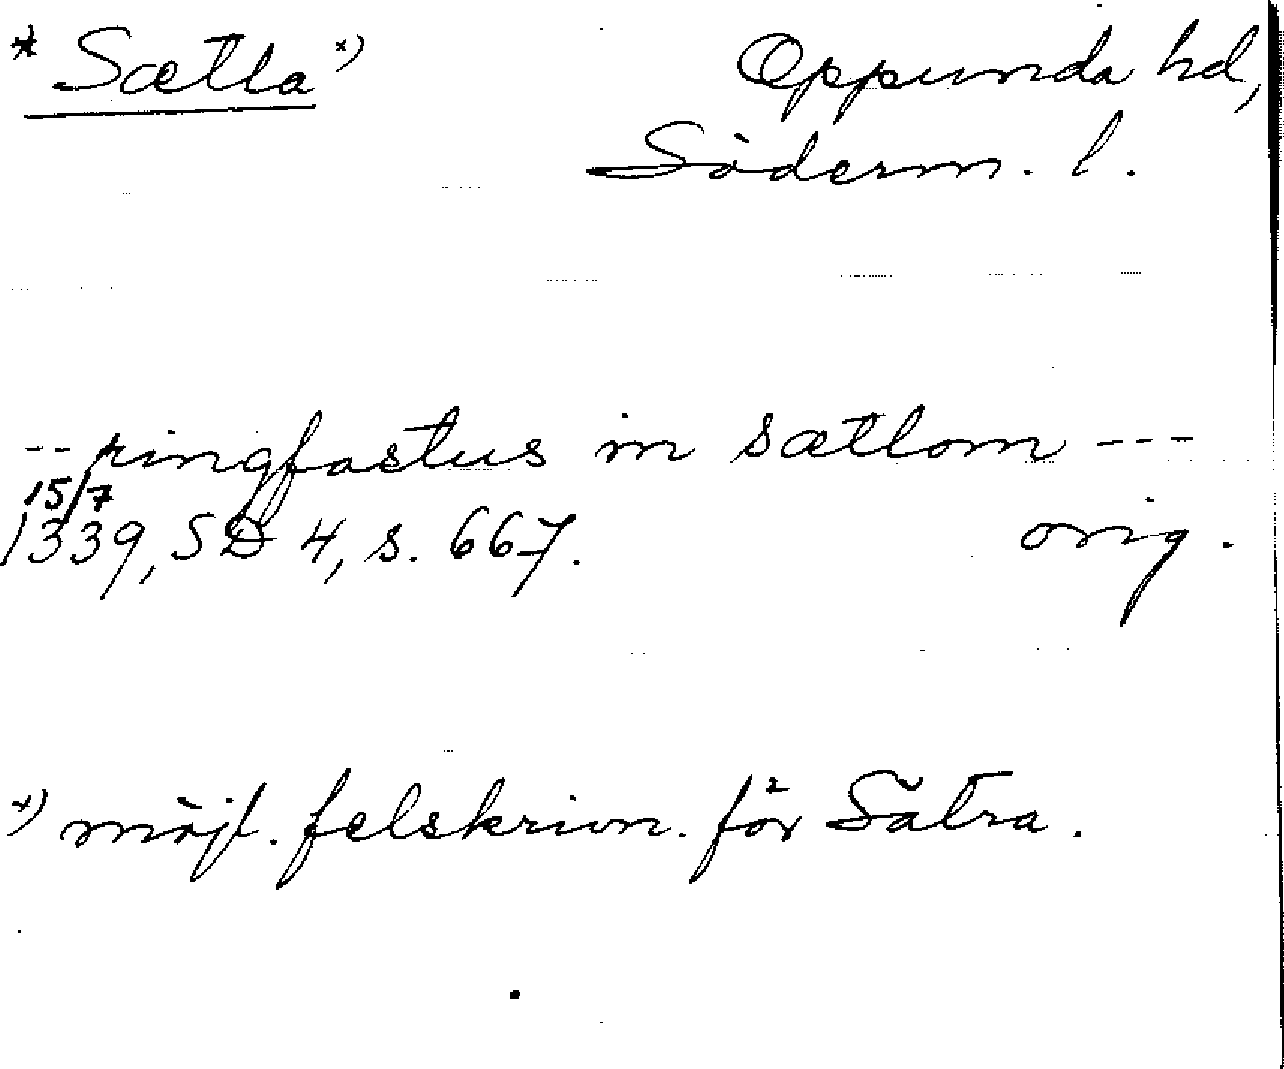 * Sætla x) Oppunda hd,
Söderm. l.
-- ringfastus in sætlom ---
15/7
1339, SD 4, s. 667. orig.
x) möjl. felskrivn. för Sätra.